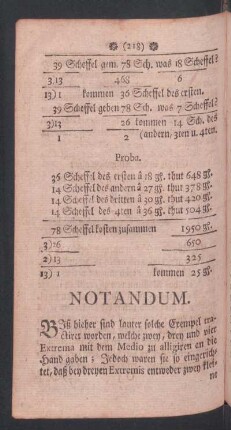 (218)
39 Scheffel gem. 78 Sch. was 18 Scheffel?
3.13 468 6
13) 1 kommen 36 Scheffel des ersten.
39 Scheffel geben 78 Sch. was 7 Scheffel?
3)13 26 kommen 14 Sch. des
1 2 (andern, 3ten u. 4ten.
Proba.
36 Scheffel des ersten â 18 gl. thut 648 gl.
14 Scheffel des andern â 27 gl. thut 378 gl.
14 Scheffel des dritten â 30 gl. thut 420 gl.
14 Scheffel des 4ten â 36 gl. thut 504 gl.
78 Scheffel kosten zusammen 1950 gl.
3)26 650
13) 2 325
13) 1 kommen 25 gl.
NOTANDUM.
Biß hieher sind lauter solche Exempel tra-
ctiret worden, welche zwey, drey und vier
Extrema mit dem Medio zu alligiren an die
Hand gaben; Jedoch waren sie so eingerich-
tet, daß bey dreyen Extremis entweder zwey klei-
ne